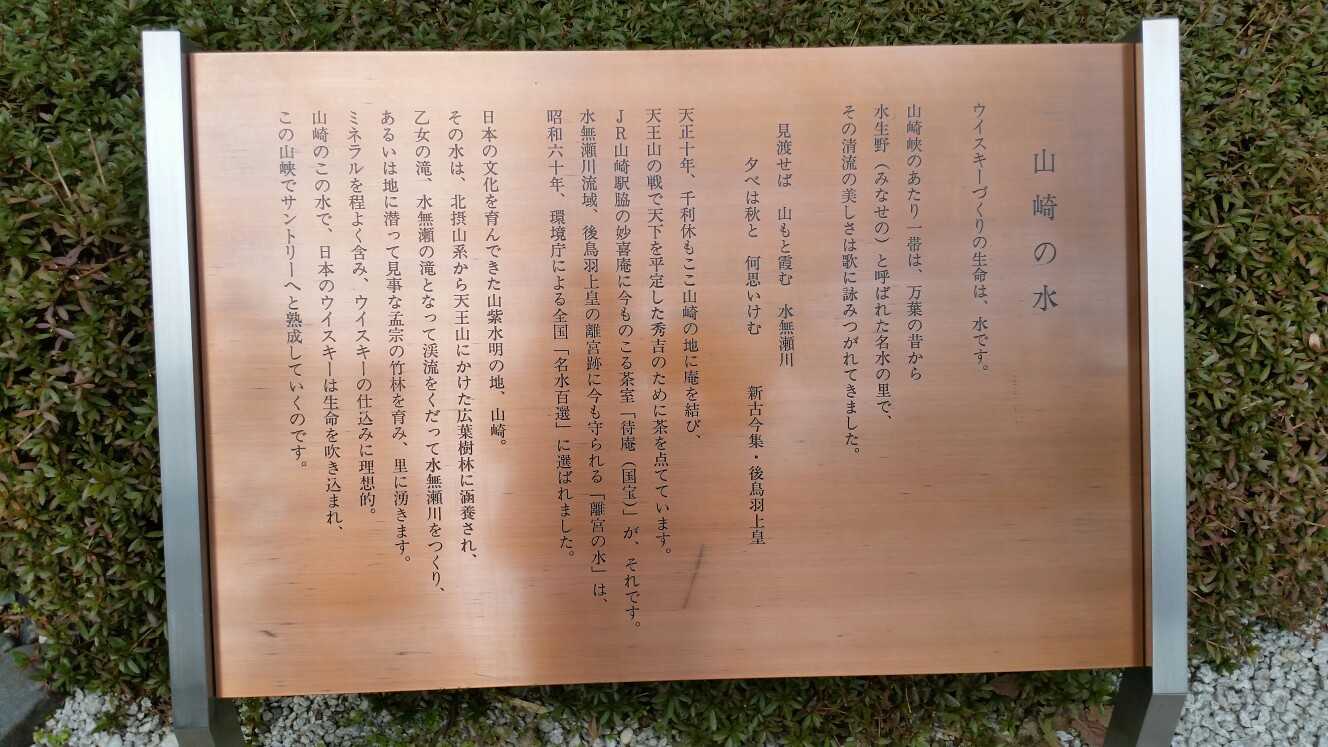 山崎の水
ウイスキーづくりの生命は、水です。
山崎峡のあたり一帯は、万葉の昔から
水生野（みなせの）と呼ばれた名水の里で、
その清流の美しさは歌に詠みつがれてきました。
見渡せば　山もと霞む　水無瀬川
夕べは秋と　何思いけむ
新古今集・後鳥羽上皇
天正十年、千利休もここ山崎の地に庵を結び、
天王山の戦で天下を平定した秀吉のために茶を点てています。
JR山崎駅脇の妙喜庵に今ものこる茶室「待庵（国宝）」が、それです。
水無瀬川流域、後鳥羽上皇の離宮跡に今も守られる「離宮の水」は、
昭和六十年、環境庁による全国「名水百選」に選ばれました。
日本の文化を育んできた山紫水明の地、山崎。
その水は、北摂山系から天王山にかけた広葉樹林に涵養され、
乙女の滝、水無瀬の滝となって渓流をくだって水無瀬川をつくり、
あるいは地に潜って見事な孟宗の竹林を育み、里に湧きます。
ミネラルを程よく含み、ウイスキーの仕込みに理想的。
山崎のこの水で、日本のウイスキーは生命を吹き込まれ、
この山峡でサントリーへと熟成していくのです。